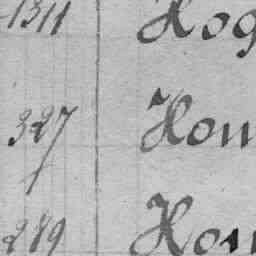 1311 Hog
327 Hom
289 Hom